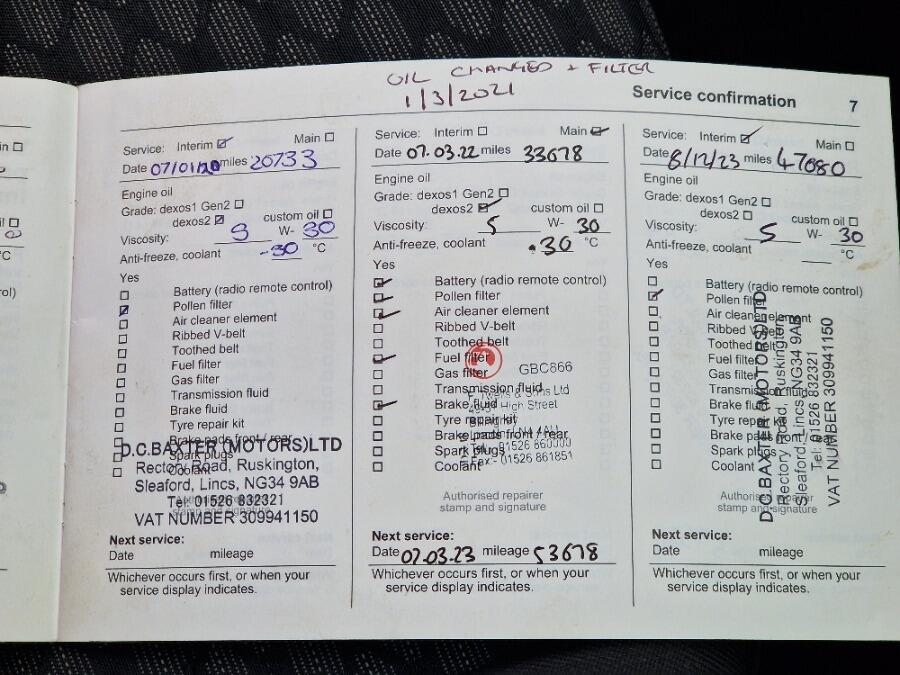 OIL CHANGED + FILTER
1/3/2021
Service confirmation 7
Service: Interim Main
Date 07/01/20 miles 20733
Engine oil
Grade: dexos1 Gen2
dexos2 custom oil
Viscosity: W- 30
Anti-freeze, coolant -30 °C
Yes
Battery (radio remote control)
Pollen filter
Air cleaner element
Ribbed V-belt
Toothed belt
Fuel filter
Gas filter
Transmission fluid
Brake fluid
Tyre repair kit
Brake pads front / rear
Spark plugs
Coolant
D.C.BAXTER (MOTORS)LTD
Rectory Road, Ruskington,
Sleaford, Lincs, NG34 9AB
Tel: 01526 832321
VAT NUMBER 309941150
Authorised repairer
stamp and signature
Next service:
Date mileage
Whichever occurs first, or when your
service display indicates.
Service: Interim Main
Date 07.03.22 miles 33678
Engine oil
Grade: dexos1 Gen2
dexos2 custom oil
Viscosity: 5 W- 30
Anti-freeze, coolant .30 °C
Yes
Battery (radio remote control)
Pollen filter
Air cleaner element
Ribbed V-belt
Toothed belt
Fuel filter
Gas filter
Transmission fluid
Brake fluid
Tyre repair kit
Brake pads front / rear
Spark plugs
Coolant
GBC866
& Sons Ltd
High Street
Tel: 01526 860000
Fax: 01526 861851
Authorised repairer
stamp and signature
Next service:
Date 07.03.23 mileage 53678
Whichever occurs first, or when your
service display indicates.
Service: Interim Main
Date 8/12/23 miles 47080
Engine oil
Grade: dexos1 Gen2
dexos2 custom oil
Viscosity: 5 W- 30
Anti-freeze, coolant °C
Yes
Battery (radio remote control)
Pollen filter
Air cleaner element
Ribbed V-belt
Toothed belt
Fuel filter
Gas filter
Transmission fluid
Brake fluid
Tyre repair kit
Brake pads front / rear
Spark plugs
Coolant
D.C.BAXTER (MOTORS)LTD
Rectory Road, Ruskington,
Sleaford, Lincs, NG34 9AB
Tel: 01526 832321
VAT NUMBER 309941150
Authorised repairer
stamp and signature
Next service:
Date mileage
Whichever occurs first, or when your
service display indicates.